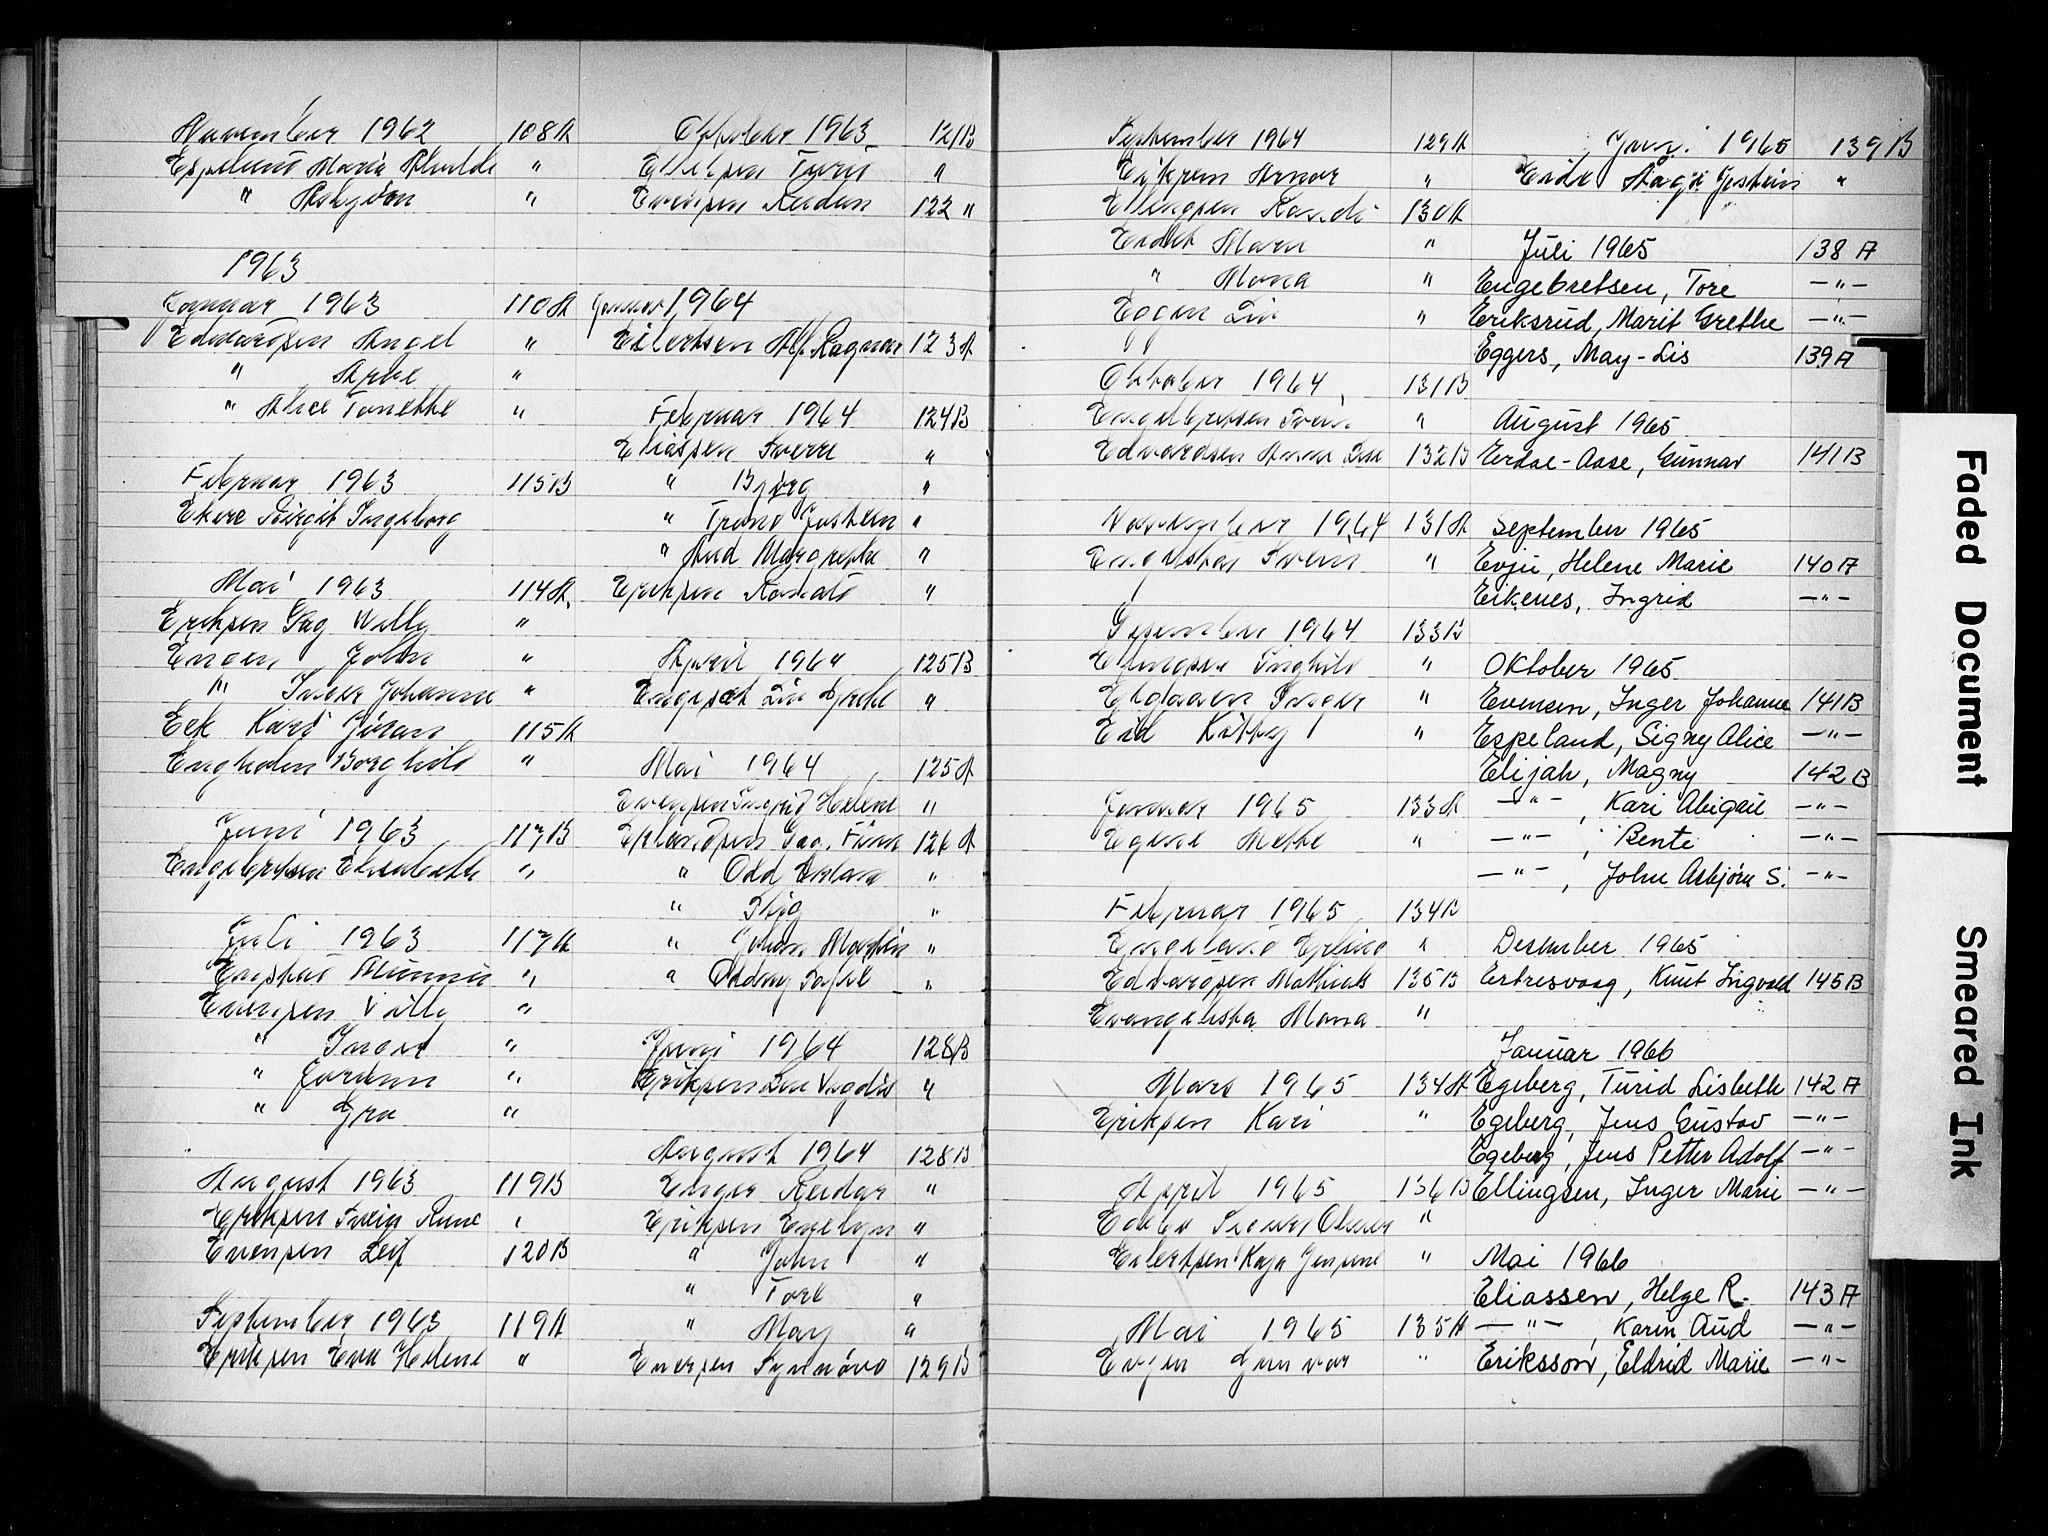 November 1962 108A
Espelund Maria Alvilde "
" Asbjörn "
1963
Januar 1963 110A
Edvardsen Angel "
" Arne "
" Alice Tonette "
Februar 1963 115B
Ekre Birgit Ingeborg
Mai 1963 114A
Eriksen Dag Willy "
Engen John "
" Inger Johanne "
Eek Kari Jöran 115A
Engholm Borghild "
Juni 1963 117B
Engebretsen Elisabeth "
Juli 1963 117A
Engstad "
Evensen Villy "
" Inger "
" Jorunn "
" Gro "
August 1963 119B
Eriksen Svein Rune "
Evensen Leif 120B
September 1963 119A
Eriksen Eva Helene "
Oktober 1963 121B
Ellefsen Turid "
Evensen Reidun 122 "
Januar 1964
Eilertsen Alf Ragnar 123A
Februar 1964 124B
Eliassen Sverre "
" Bjørg "
" Trond Jostein "
" Aud Margrethe "
Eriksen Ronald "
April 1964 125B
Engeset Liv Grete "
Mai 1964 125A
Evensen Ingrid Helene "
Erlandsen Dag Finn 126A
" Odd Erland "
" Stig "
" Johan Martin "
" Oddny Sofie "
Juni 1964 128B
Eriksen Lise Vigdis "
August 1964 128B
Enger Reidar "
Eriksen Evelyn "
" John "
" Tore "
" May "
Enersen Synnöve 129B
September 1964 129A
Eikrem Arnar "
Ellingsen Randi 130A
Eidet Maru "
" Mona "
Eggen Liv "
Oktober 1964 131B
Engebretsen Svein "
Edvardsen Anne Lise 132B
November 1964 131A
Engestøl Svein "
Desember 1964 133B
Ellingsen Inghild "
Eldøen Inger "
Eid Kitty "
Januar 1965 133A
Egene Mette "
Februar 1965 134B
Engeland Erling "
Edvardsen Mathias 135B
Evangelista Mona "
Mars 1965 134A
Eriksen Kari "
April 1965 136B
Oliver "
Eilertsen Kaja Jensine "
Mai 1965 135A
Evjen Gunvor "
Juni 1965 139B
Eide Aage Jostein "
Juli 1965 138A
Engebretsen, Tore —"—
Eriksrud, Marit Grethe —"—
Eggers, May-Lis 139A
August 1965
Erdal-Aase, Gunnar 141B
September 1965
Evju, Helene Marie 140A
Eikenes, Ingrid —"—
Oktober 1965
Evensen, Inger Johanne 141B
Espeland, Signy Alice —"—
Elijah, Magny 142B
—"—, Kari Abigail —"—
—"—, Bente —"—
—"—, John Asbjørn S. —"—
Desember 1965
Ertresvaag, Knut Ingvald 145B
Januar 1966
Egeberg, Turid Lisbeth 142A
Egeberg, Jens Gustav —"—
Egeberg, Jens Petter Adolf —"—
Ellingsen, Inger Marie —"—
Mai 1966
Eliassen, Helge R. 143A
—"—, Karin Aud —"—
Eriksson, Eldrid Marie —"—
Faded Document
Smeared Ink